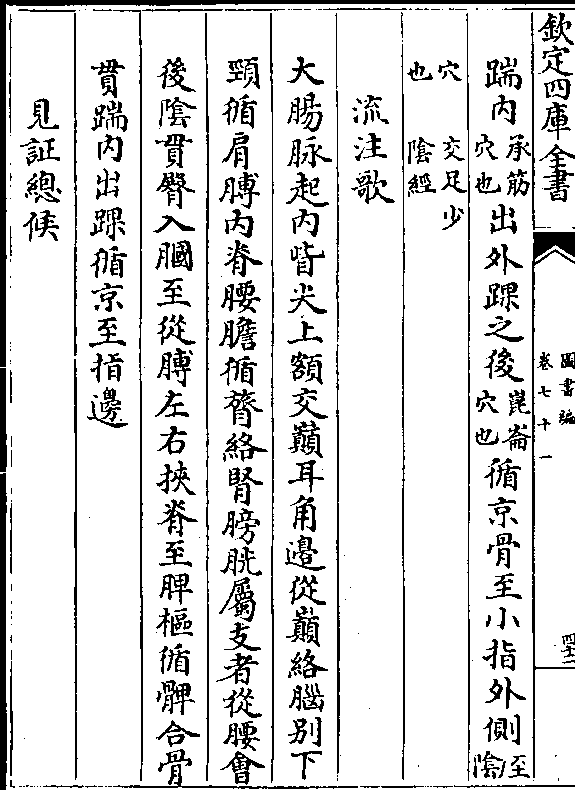 欽定四庫全書
圖書編
卷七十一
踹内承筋穴也出外踝之後崑崙穴也循京骨至小指外側至陰
穴也交足少陰經
流注歌
大腸脉起内眥尖上額交巔耳角邊從巔絡腦别下
頸循肩膊内脊腰膽循膂絡腎膀胱屬支者從腰會
後陰貫臀入膕至從膊左右挾脊至胛樞循髀合骨
貫踹内出踝循京至指邊
見証總候